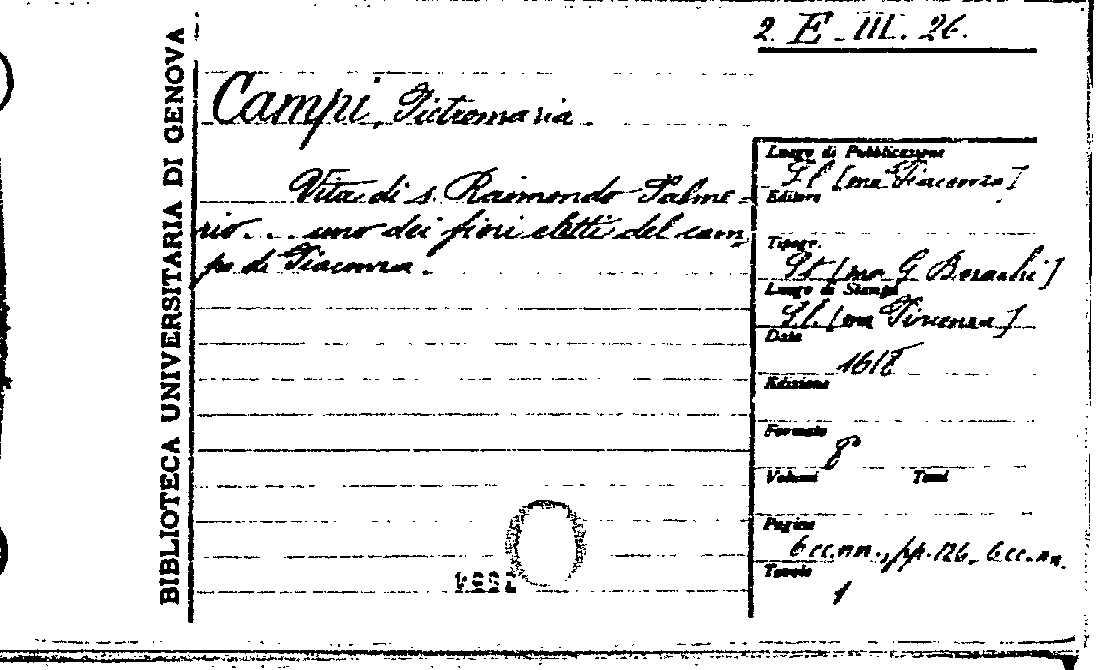 2. E. III. 26.
BIBLIOTECA UNIVERSITARIA DI GENOVA
Campi, Pietromaria.
Vita di s. Raimondo Palme=
rio... uno dei fiori eletti del cam=
po di Piacenza.
Luogo di Pubblicazione
S.l. [ma Piacenza]
Editore
Tipogr.
[ma G.
Luogo di Stampa
S.l. [ma Piacenza]
Data
1618
Edizione
Formato
8°
Volumi Tomi
Pagine
6 cc.nn., pp. 126, 6 cc.nn.
Tavole
1